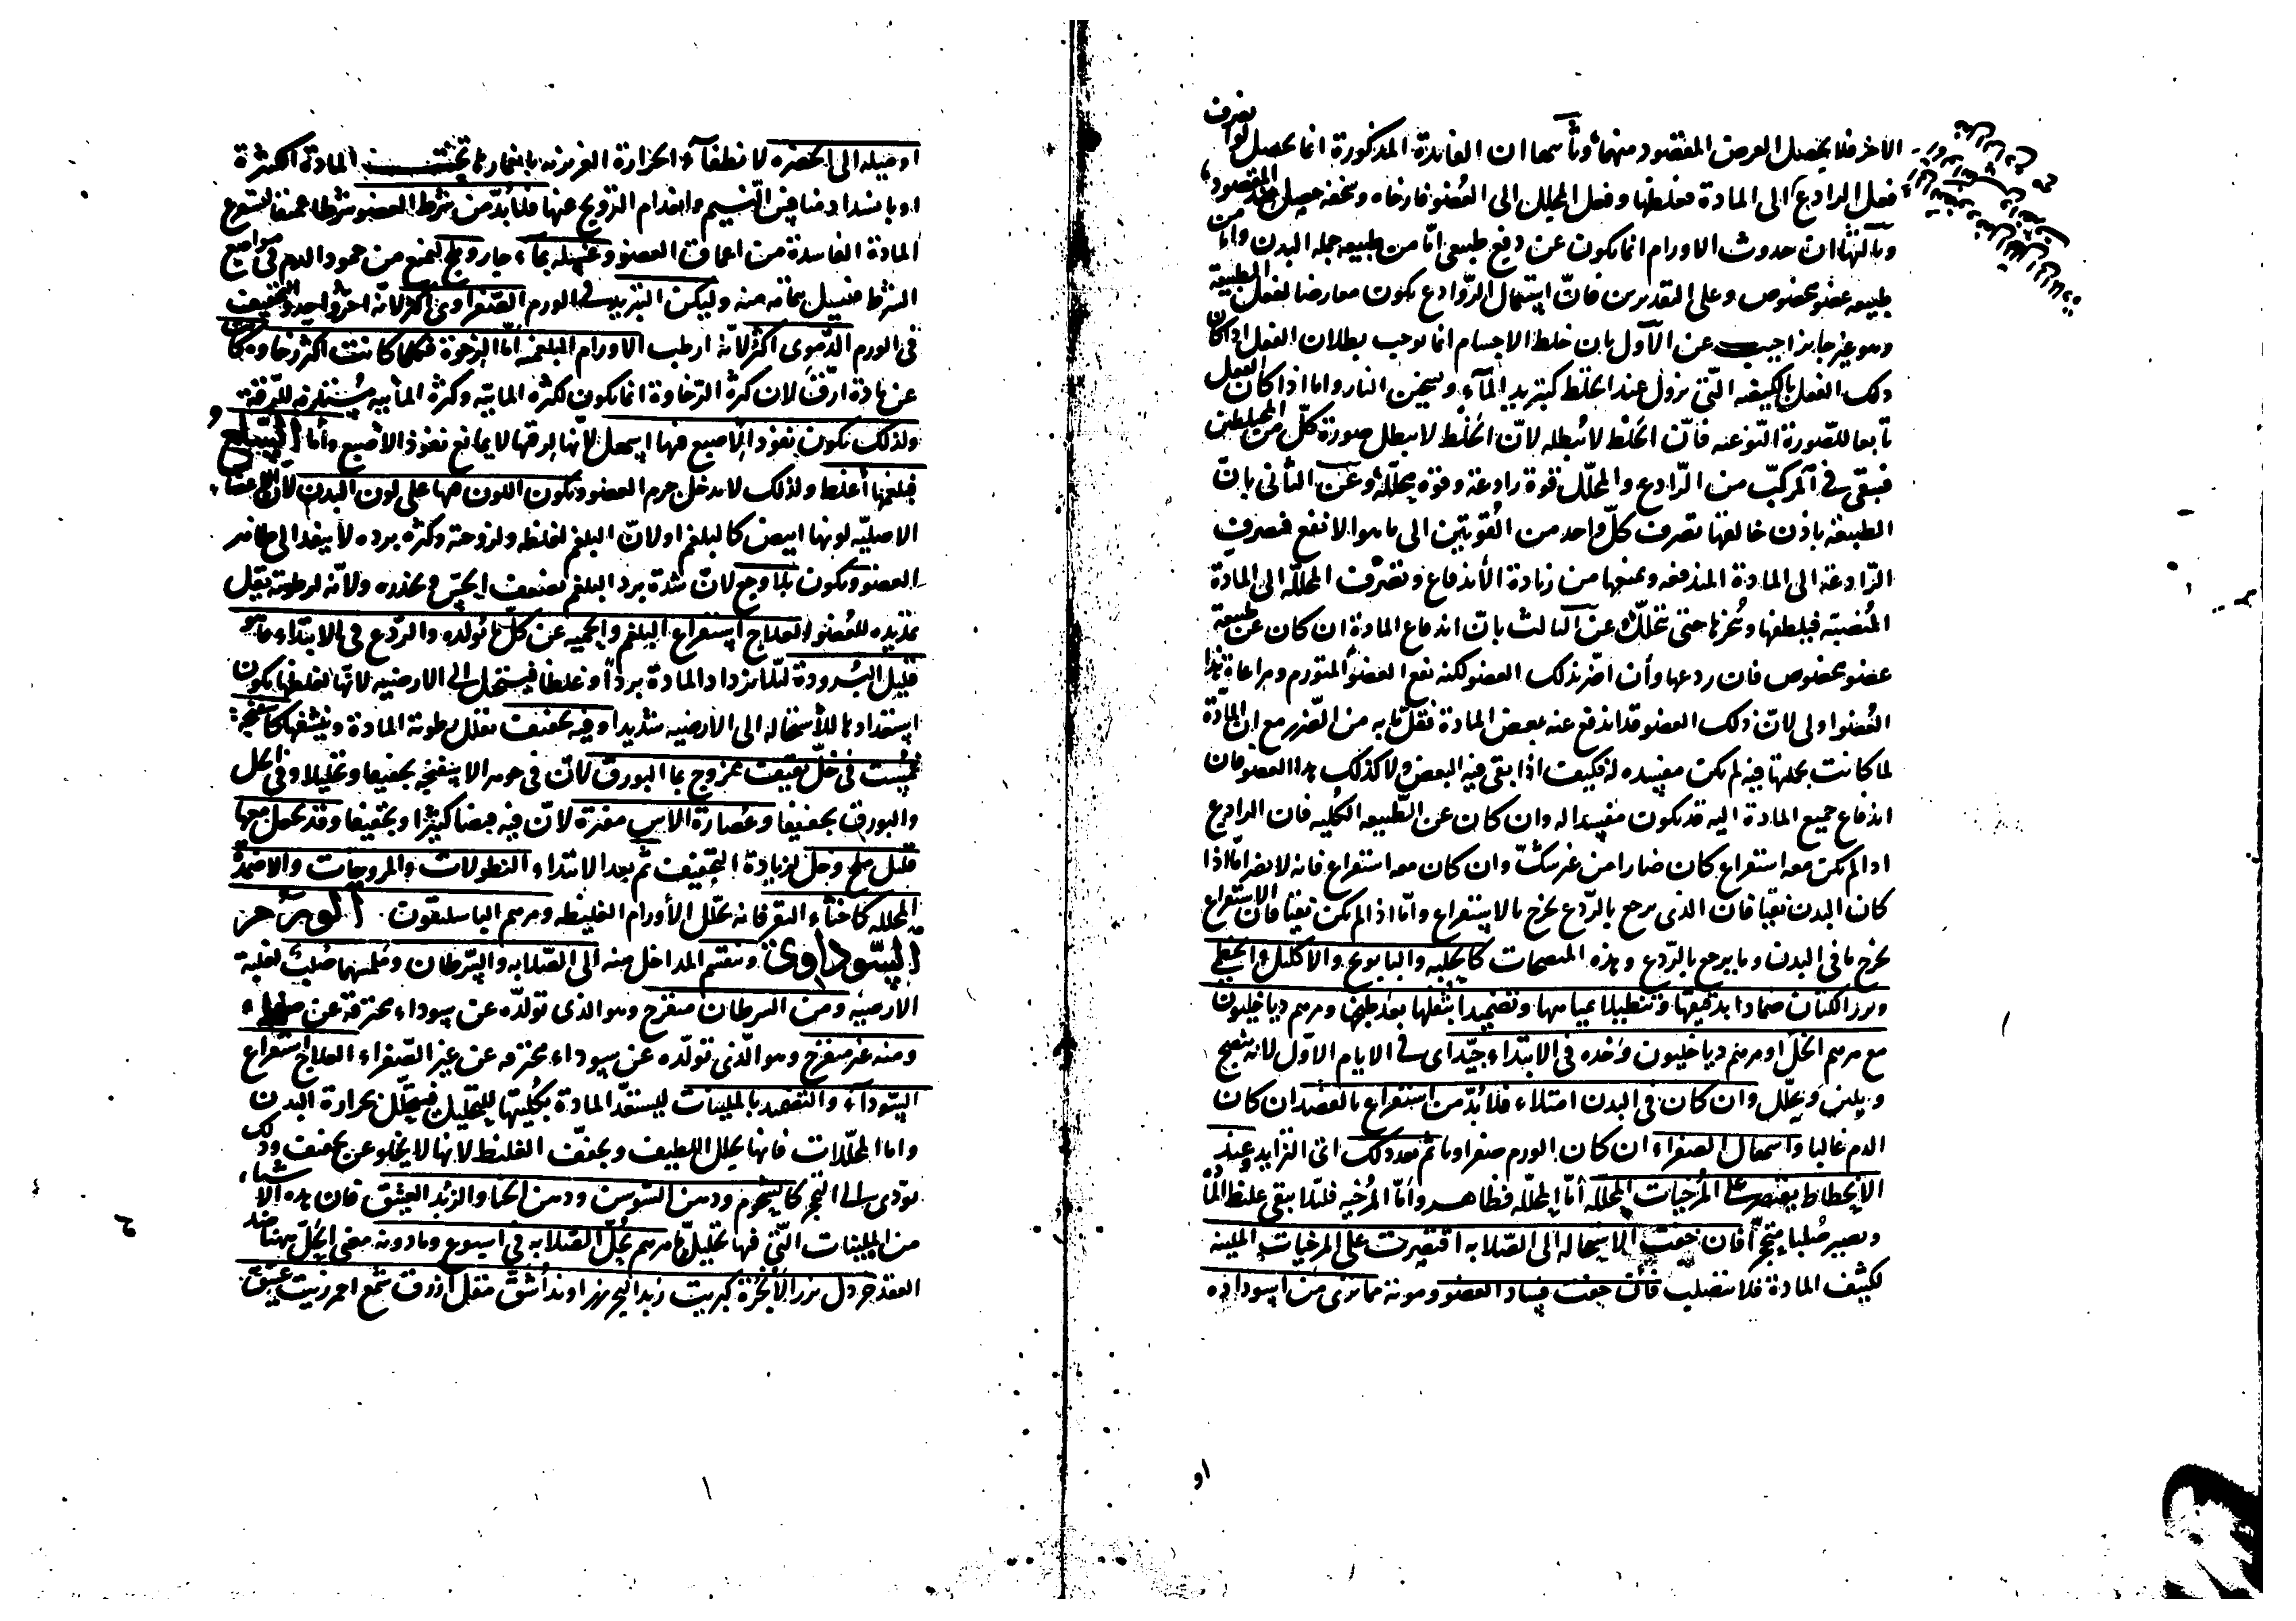 الاخر فلا يحصل الغرض المقصود منهما وثانيها ان الفايدة المذكورة انما يحصل لو انصرف
فعل الرادع الى المادة فغلظها وفعل المحلل الى العضو فارخاه وسخنه حصل ضد المقصود
وثالثها ان حدوث الاورام انما يكون عن دفع طبيعى امّا من طبيعه جمله البدن وامّا من
طبيعه عضو مخصوص وعلى التقديرين فانّ استعمال الروادع يكون معارضا لفعل الطبيعة
وهو غير جايز اجيب عن الاول بان خلط الاجسام انما يوجب بطلان الفعل اذا كان
ذلك الفعل بالكيفيه الّتى تزول عند الخلط كتبريد المآء وتسخين النار واما اذا كان الفعل
تابعا للصّورة النّوعيه فانّ الخلط لا يبطله لانّ الخلط لا يبطل صورة كلّ من المختلطين
فيبقى فى المركّب من الرّادع والمحلّل قوة رادعة وقوة محلّلة وعن الثانى بانّ
الطبيعة باذن خالقها تصرف كلّ واحد من القوتين الى ما هو الانفع فيصرف
الرّادعة الى المادة المندفعه ويمنعها من زيادة الاندفاع وتصرّف المحللّه الى المادة
المنصبّه فيلطفها ويبخّرها حتى تتحلّل وعن الثالث بانّ اندفاع المادة ان كان عن طبيعة
عضو مخصوص فان ردعها وان اضّر بذلك العضو لكنه نفع العضو المتورم ومراعاة هذا
العضو اولى لانّ ذلك العضو قد اندفع عنه بعض المادة فقلّ ما به من الضّرر مع ان المادّة
لما كانت بجملتها فيه لم يكن مفسده له فكيف اذا بقى فيه البعض ولا كذلك هذا العضو فان
اندفاع جميع المادة اليه قد يكون مفسدا له وان كان عن الطّبيعه الكليه فان الرادع
اذا لم يكن معه استفراغ كان ضارا من غير شكّ وان كان معه استفراغ فانه لا يضر امّا اذا
كان البدن نقيّا فان الذى يرجع بالرّدع يخرج بالاستفراغ وامّا اذا لم يكن نقيّا فان الاستفراغ
يخرج ما فى البدن وما يرجع بالرّدع وهذه المنضجات كالحلبه والبابونج والاكليل والخطمى
وبزر الكتان ضمادا بدقيقها وتنطيلا بمياهها وتضميدا بثفلها بعد طبخها ومرهم دياخليون
مع مرهم الخل او مرهم دياخليون وحده فى الابتداء جيّد اى فى الايام الاول لانه ينضج
ويلين ويحلّل وان كان فى البدن امتلاء فلا بدّ من استفراغ بالفصد ان كان
الدم غالبا واسهال الصفراء ان كان الورم صفراويا ثم بعد ذلك اى التزايد وعند
الانحطاط يقتصر على المرخيات المحلله امّا المحلّله فظاهر وامّا المرخيه فلئلا يبقى غليظ المادّة
ويصير صلبا متحجّرا فان خفت الاستحاله الى الصّلابه اقتصرت على المرخيات الملينه
لكثف المادة فلا يتصلب فان خفت فساد العضو وموته مما ترى من اسوداده
او
او ميله الى الخضره لانطفآء الحرارة الغريزيه بانغمارها تحت المادة الكثيرة
او بانسداد منافس النّسيم وانعدام الترويح عنها فلا بُدّ من شرط العضو شرطا عميقا لتستفرغ
المادة الفاسدة من اعماق العضو وغسله بمآء حار وملح ليمنع من جمود الدم فى مواضع
الشرط فيسيل بتمامه منه وليكن التبريد فى الورم الصّفراوى اكثر لانّه احرّ واحدّ والتجفيف
فى الورم الدّموى اكثر لانّه ارطب الاورام البلغميه امّا الرّخوة فكلما كانت اكثر رخاوه كان
عن مادة ارقّ لان كثرة الرّخاوة انما يكون لكثرة المائيّه وكثرة المائيه مستلزمه للرّقة
ولذلك يكون نفوذ الاصبع فيها اسهل لانّها لرقتها لا يمانع نفوذ الاصبع وأما السّلع
فبلغمها اغلظ ولذلك لا يدخل جرم العضو ويكون اللون فيها على لون البدن لانّ الاعضاء
الاصليّه لونها ابيض كالبلغم او لانّ البلغم لغلظه ولزوجته وكثرة برده لا ينفذ الى ظاهر
العضو ويكون بلا وجع لانّ شدة برد البلغم تضعف الحسّ وتخدره ولانّه لرطوبته يقل
تمديده للعضو العلاج استفراغ البلغم والحميه عن كلّ ما يولده والرّدع فى الابتداء بما هو
قليل البرودة لئلا يزداد المادة برداً وغلظا فيستحيل الى الارضيه لانّها لغلظها يكون
استعدادها للاستحاله الى الارضيه شديدا وفيه تجفيف يقلل رطوبة المادة وينشفها كاسفنجة
غمست فى خلّ ثقيف ممزوج بماء البورق لانّ فى جوهر الاسفنجه تجفيفا وتحليلا وفى الخل
والبورق تجفيفا وعصارة الآس مفردة لانّ فيه قبضا كثيرا وتجفيفا وقد يجعل معها
قليل ملح وخل لزيادة التجفيف ثم بعد الابتداء النطولات والمروخات والاضمدة
المحلله كاخثاء البقر فانه يحلّل الأورام الغليظه ومرهم الباسليقون . الورم
السّوداوى وينقسم المداخل منه الى الصّلابه والسّرطان وملمسهما صلب لغلبة
الارضيه ومن السرطان متقرح وهو الذى تولّده عن سوداء محترقة عن صفراء
ومنه غير متقرح وهو الّذى تولّده عن سوداء محترقه عن غير الصّفراء العلاج استفراغ
السّودآء والتضميد بالملينات ليستعدّ المادة بكليتها للتحليل فيتحلّل بحرارة البدن
واما المحلّلات فانها يحلل اللطيف ويجفّف الغليظ لانها لا يخلو عن تجفيف وذلك
يؤدى الى التحجر كالشحوم ودهن السّوسن ودهن الحنا والزبد العتيق فان هذه الاشياء
من الملينات الّتى فيها تحليل ما مرهم يحلّ الصّلابه فى اسبوع وما دونه معنى الحلّ هنا ضد
العقد خردل بزر الانجرة كبريت زبد البحر زراوند أشق مقل ازرق شمع احمر زيت عتيق